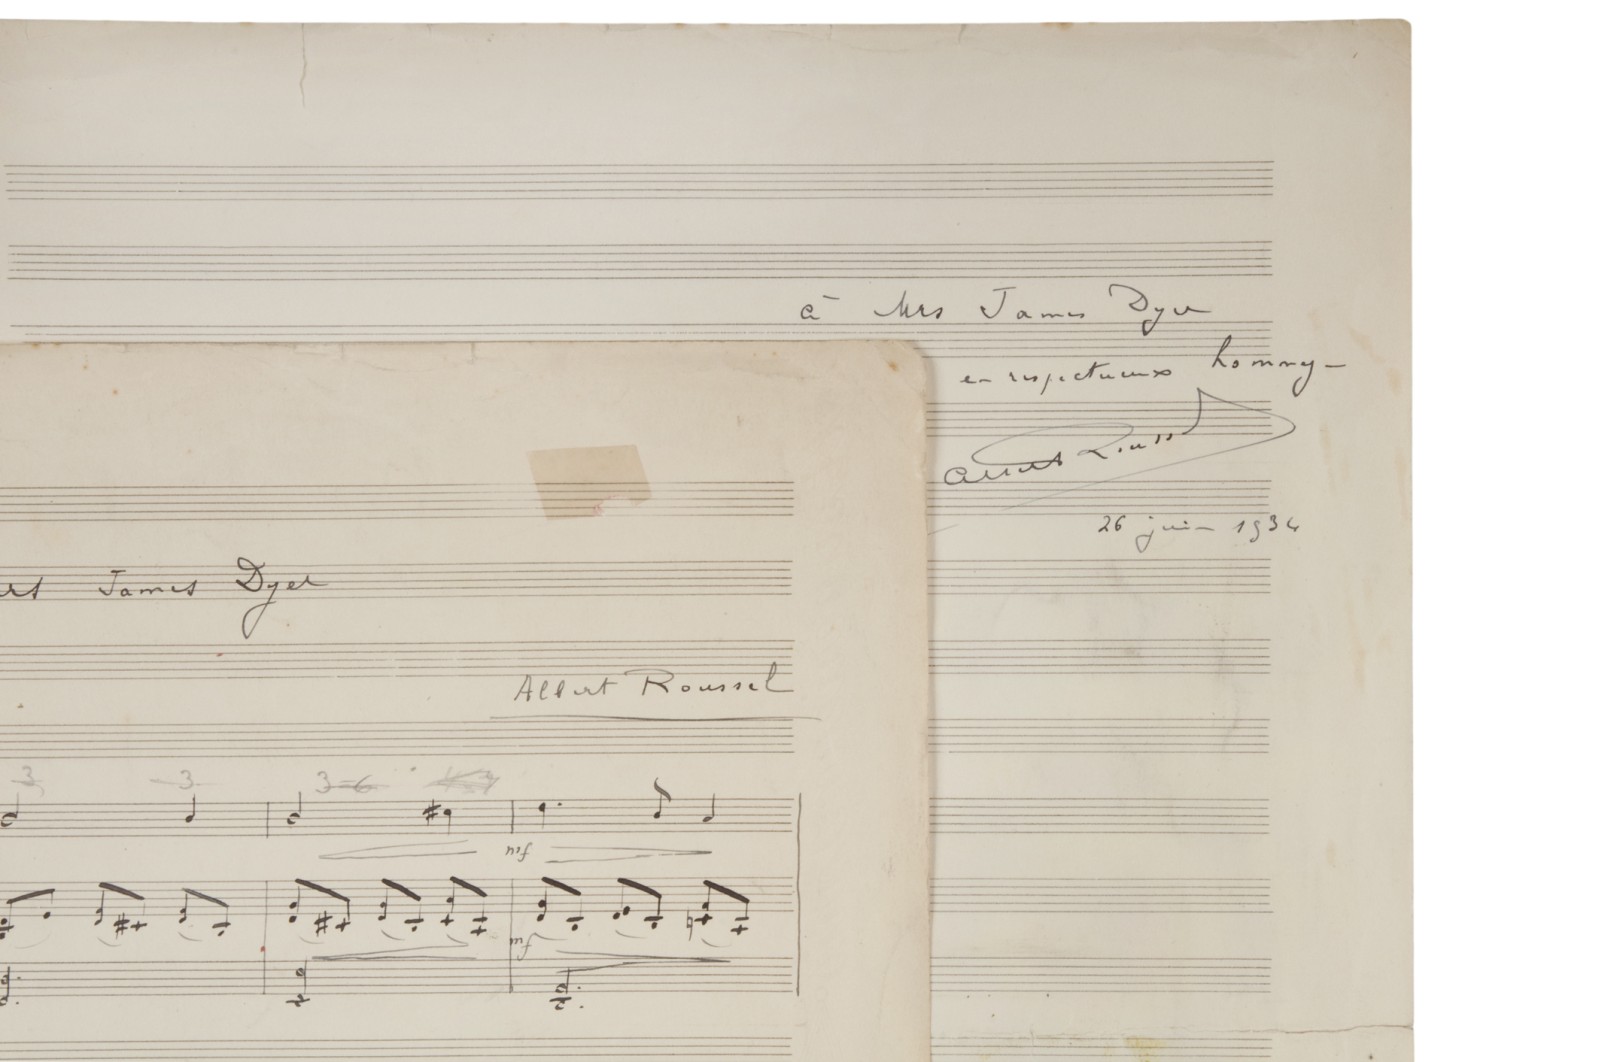 à Mrs James Dyer
en respectueux hommage
Albert Roussel
26 juin 1934
James Dyer
Albert Roussel
3 3 3=6
mf
mf